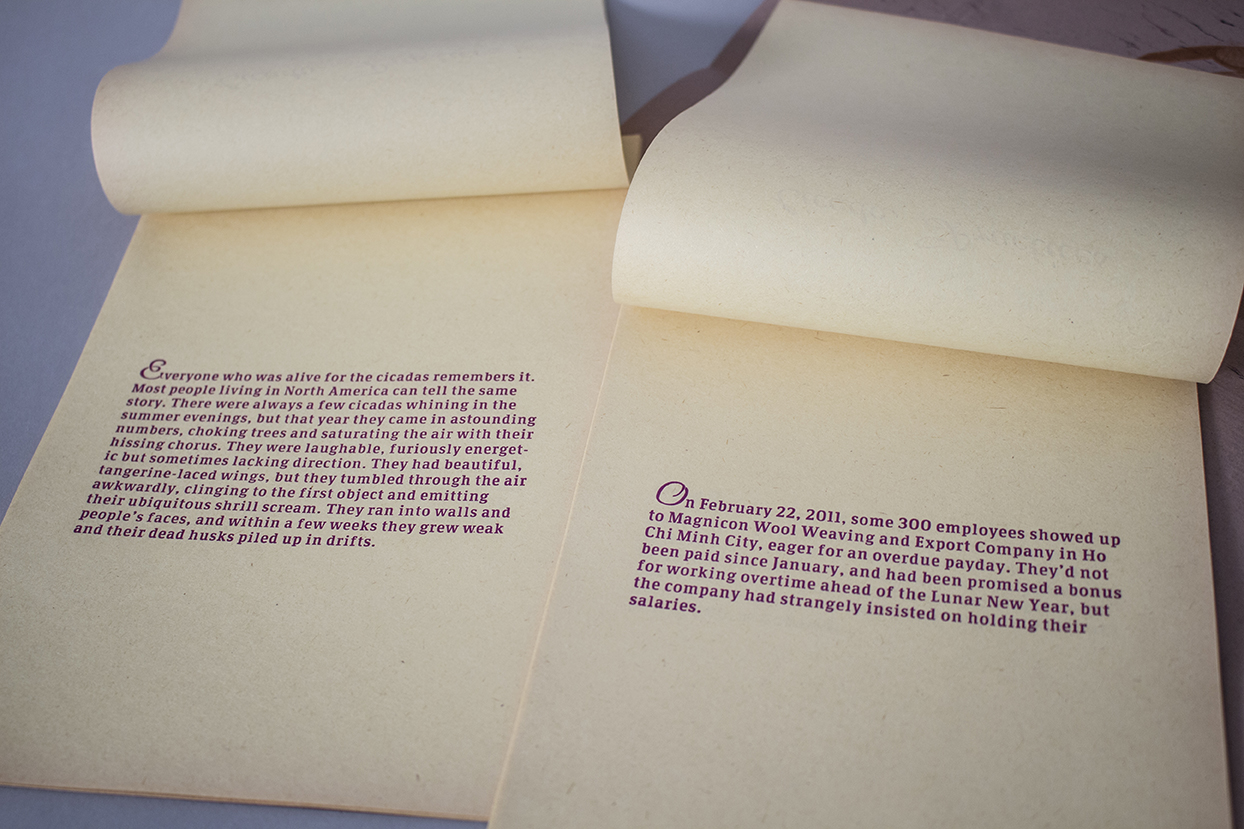 Everyone who was alive for the cicadas remembers it.
Most people living in North America can tell the same
story. There were always a few cicadas whining in the
summer evenings, but that year they came in astounding
numbers, choking trees and saturating the air with their
hissing chorus. They were laughable, furiously energet-
ic but sometimes lacking direction. They had beautiful,
tangerine-laced wings, but they tumbled through the air
awkwardly, clinging to the first object and emitting
their ubiquitous shrill scream. They ran into walls and
people's faces, and within a few weeks they grew weak
and their dead husks piled up in drifts.
On February 22, 2011, some 300 employees showed up
to Magnicon Wool Weaving and Export Company in Ho
Chi Minh City, eager for an overdue payday. They'd not
been paid since January, and had been promised a bonus
for working overtime ahead of the Lunar New Year, but
the company had strangely insisted on holding their
salaries.